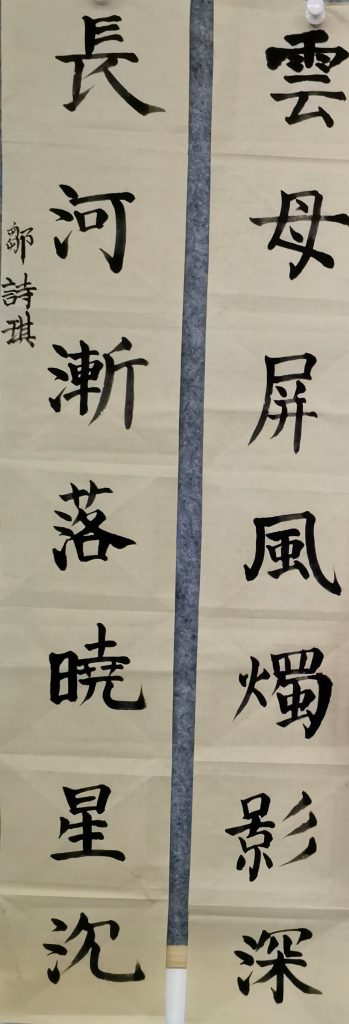 雲母屏風燭影深
長河漸落曉星沉
鄒詩琪